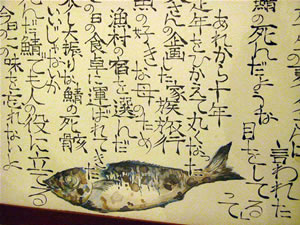 言われた
鯖の死んだような目をしてるって
あれから十年
定年をひかえて丸くなった
さんの企画した家族旅行
魚の好きな母のため
漁村の宿を選んだ
の日の食卓に運ばれてきた
大振りな鯖の死骸
いいじゃないか
んだ鯖でも人の役に立てる
今日の味を忘れないよ